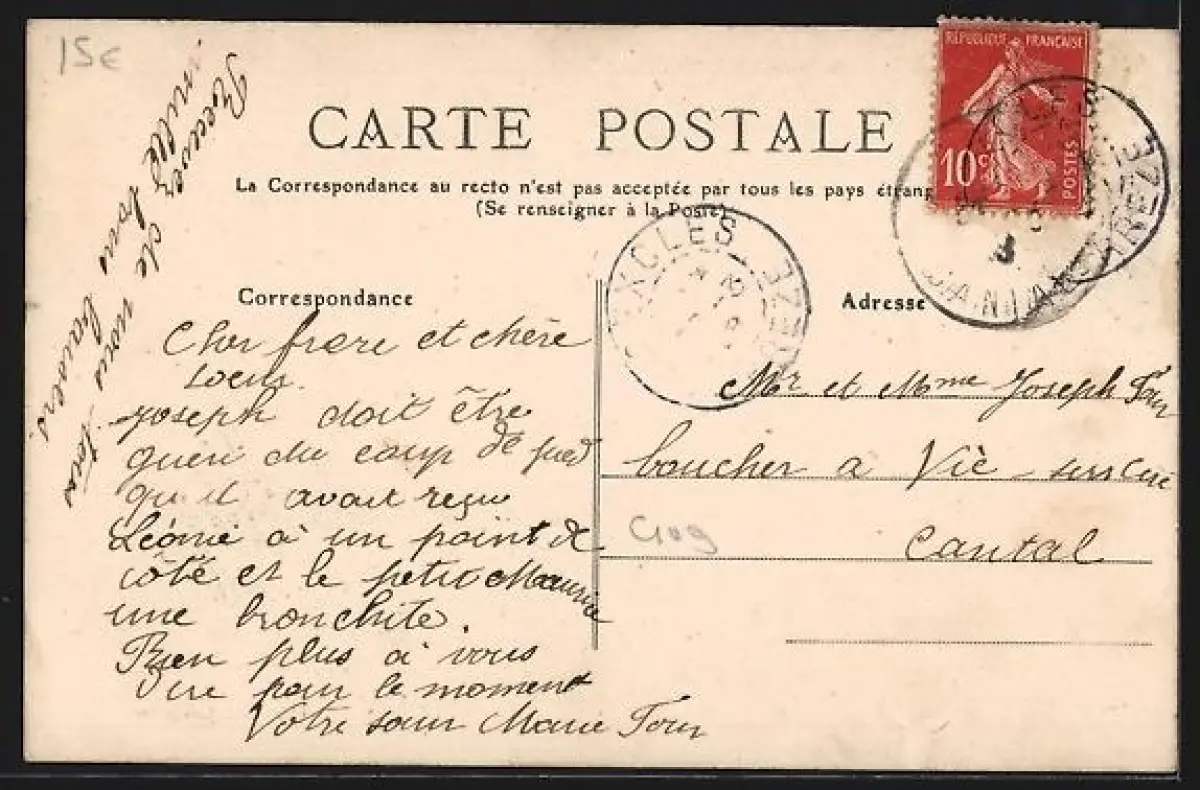 15€
RÉPUBLIQUE FRANÇAISE
10c
POSTES
CARTE POSTALE
La Correspondance au recto n'est pas acceptée par tous les pays étrang
(Se renseigner à la Poste)
Correspondance
Cher frere et chère
soeur.
Joseph doit être
gueri du coup de pied
qu il avait reçu
Léonie à un point de
côté et le petit Maurice
une bronchite.
Rien plus a vous
dire pour le moment
Votre sœur Marie Four
Recever de nous tous
mille bons baisers
Adresse
Mr et Mme Joseph Four
boucher a Vic-sur Cere
Cantal
EXCLES
CANTAL